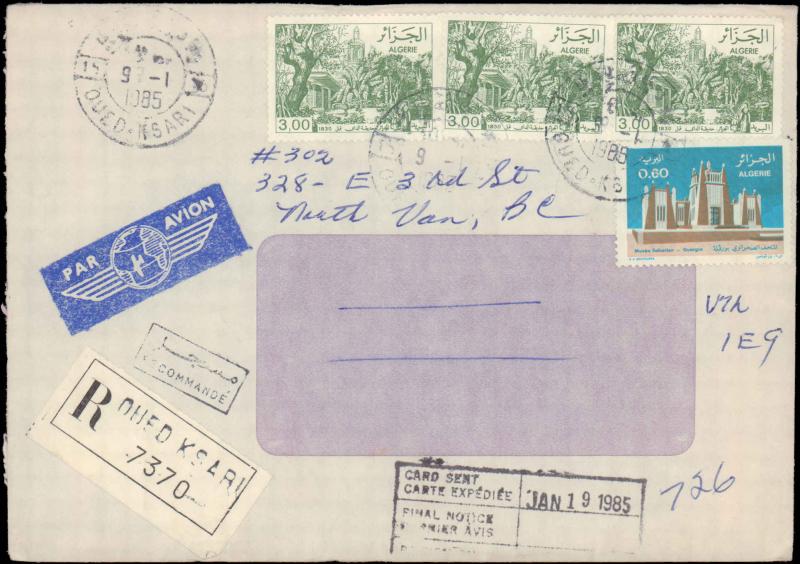 9 - 1
1985
OUED-KSARI
الجزائر
ALGERIE
3,00
1830
الجزائر
ALGERIE
3,00
1830
الجزائر
ALGERIE
3,00
1830
9
1985
OUED-KS
البريد
الجزائر
0,60
ALGERIE
Musée Saharien - Ouargla
#302
328 - E 3rd St
North Van, BC
V7L
1E9
PAR AVION
مسجل
RECOMMANDÉ
R
OUED KSARI
7370
CARD SENT
CARTE EXPÉDIÉE
JAN 19 1985
FINAL NOTICE
DERNIER AVIS
726